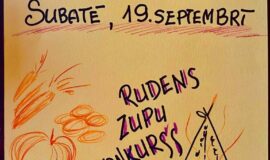 SUBATĒ, 19. SEPTEMBRĪ
RUDENS
ZUPU
KONKURSS